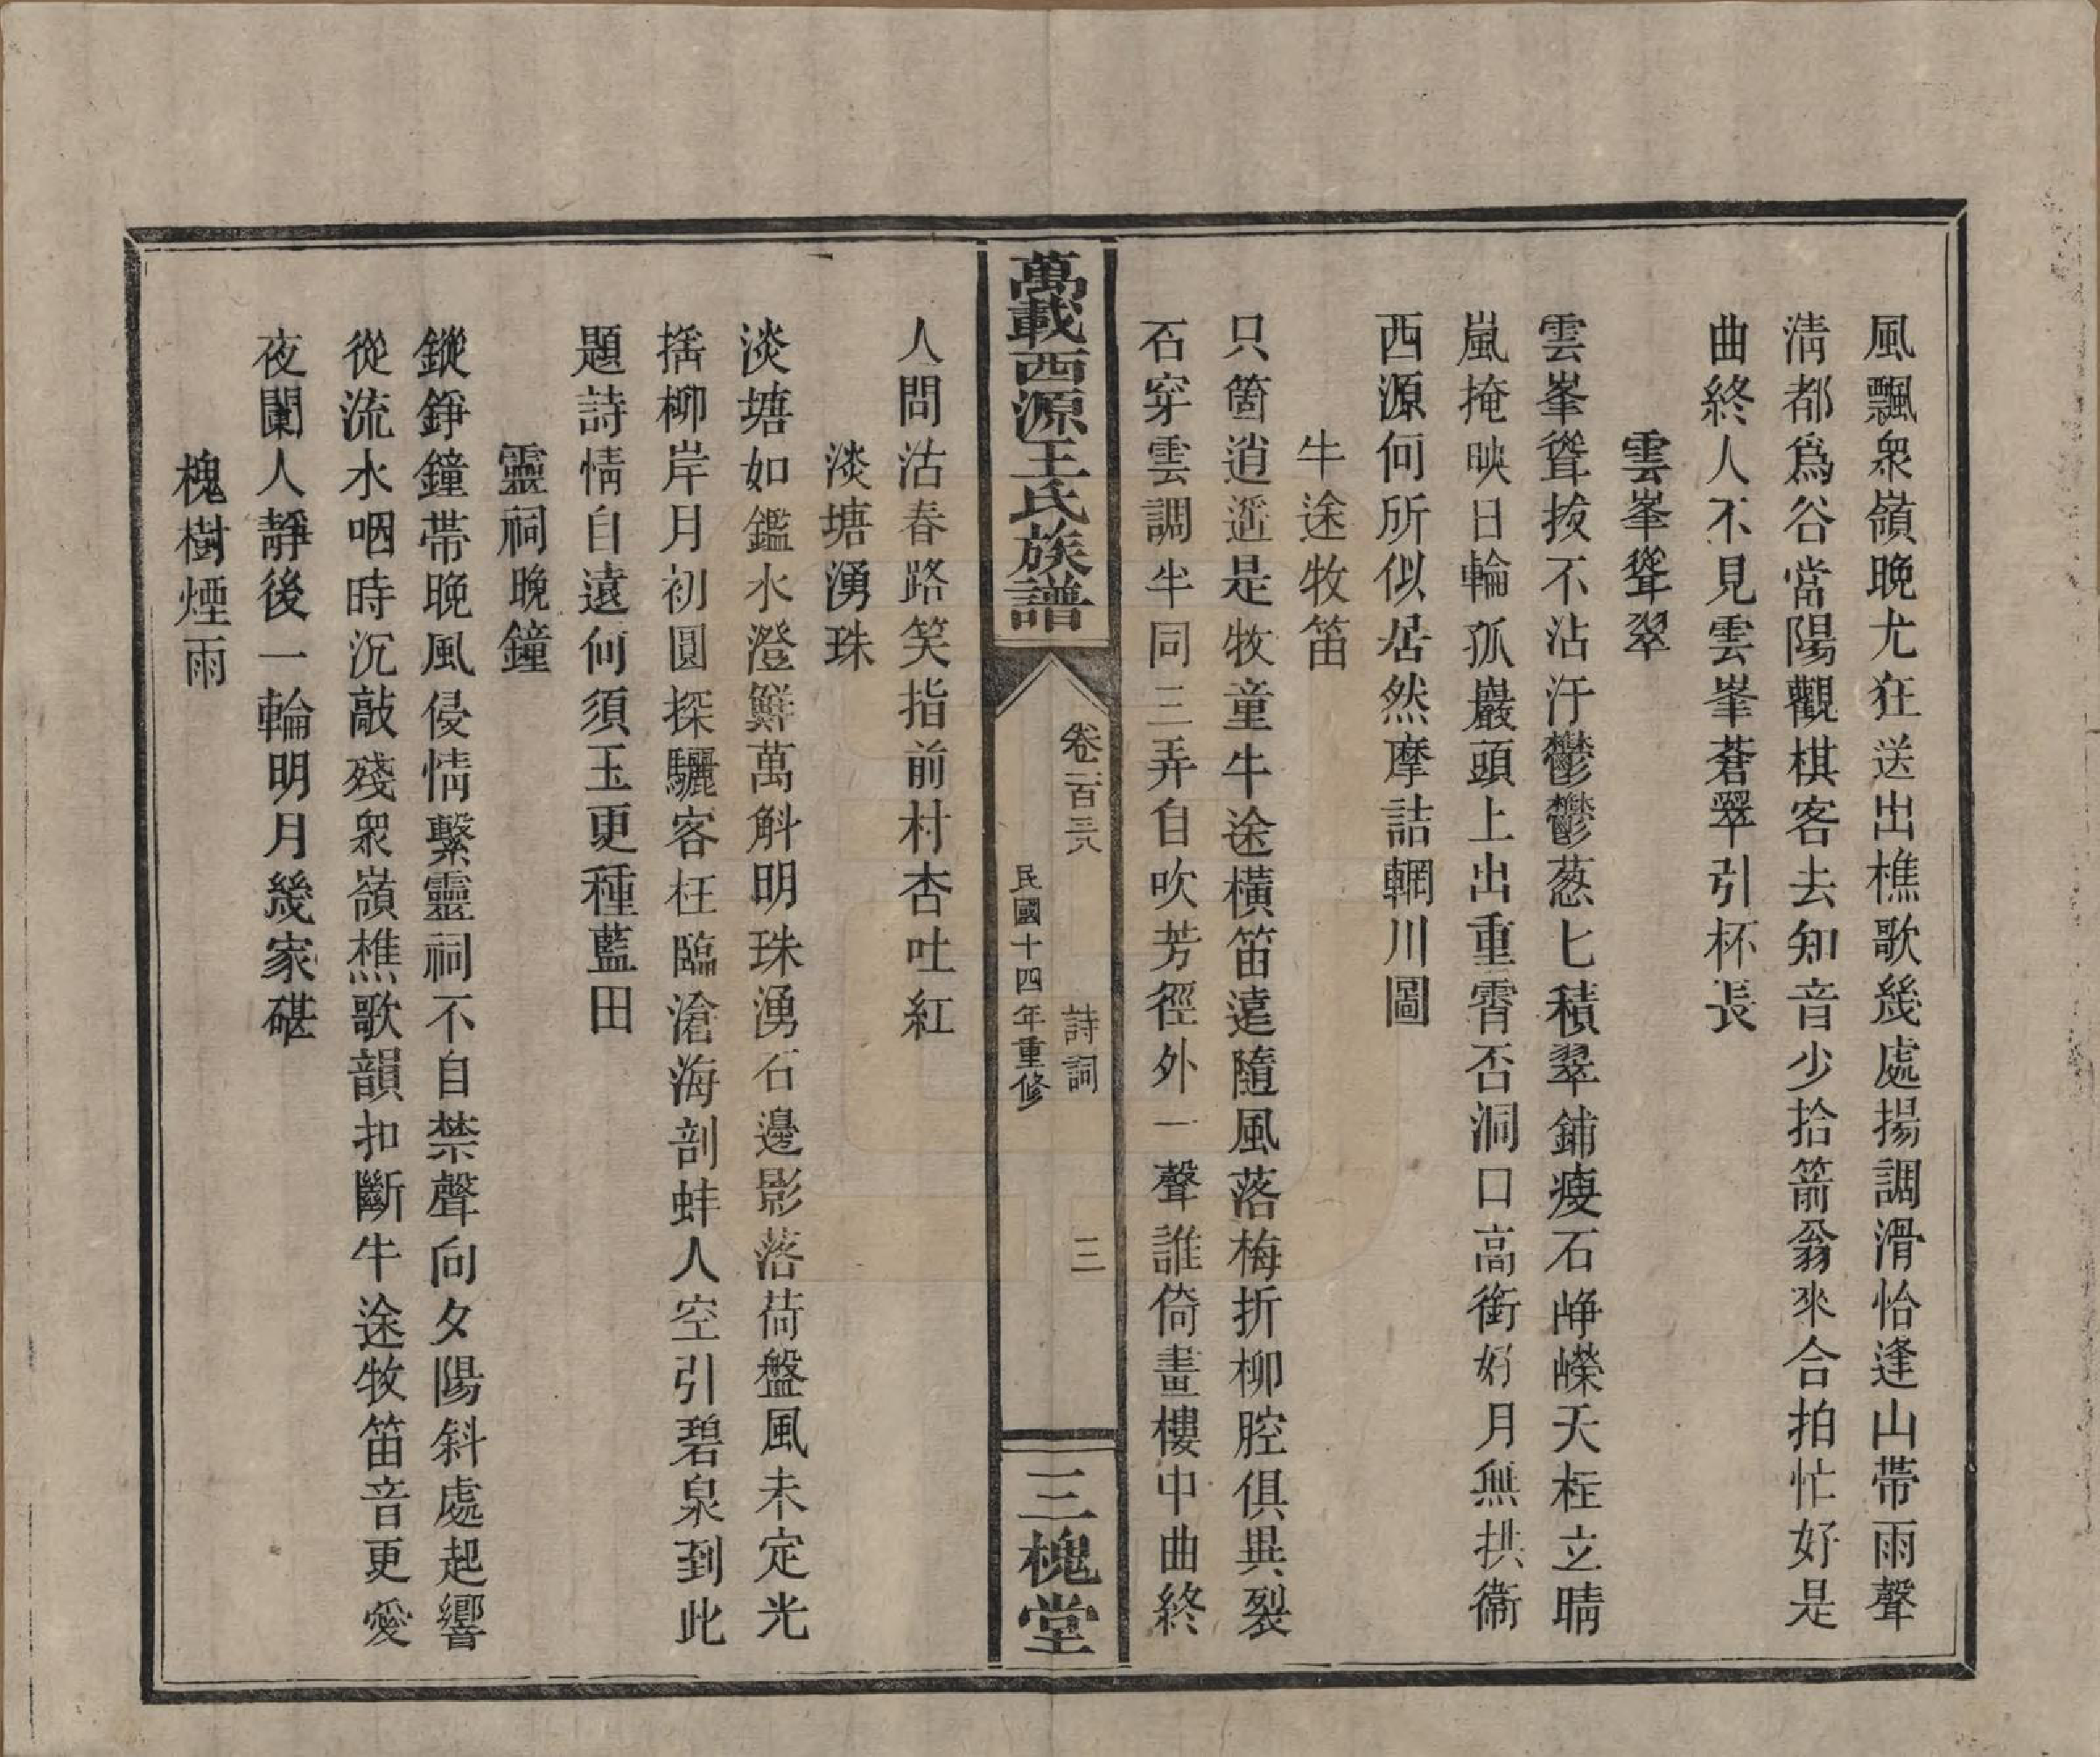 風飄衆嶺晚尤狂送出樵歌幾處揚調滑恰逢山帶雨聲
淸都爲谷當陽觀棋客去知音少拾箭翁來合拍忙好是
曲終人不見雲峯蒼翠引杯長
雲峯聳翠
雲峯聳拔不沾汙鬱鬱葱七積翠鋪瘦石崢嶸天柱立晴
嵐掩映日輪孤巖頭上出重霄否洞口高銜好月無拱衞
西源何所似居然摩詰輞川圖
牛途牧笛
只箇逍遥是牧童牛途橫笛遠隨風落梅折柳腔俱異裂
石穿雲調半同三弄自吹芳徑外一聲誰倚畫樓中曲終
萬載西源王氏族譜
卷二百三八
詩詞
三
民國十四年重修
三槐堂
人問沽春路笑指前村杏吐紅
淡塘湧珠
淡塘如鑑水澄鮮萬斛明珠湧石邊影落荷盤風未定光
搖柳岸月初圓探驪客枉臨滄海剖蚌人空引碧泉到此
題詩情自遠何須玉更種藍田
靈祠晚鐘
鏦錚鐘帶晚風侵情繫靈祠不自禁聲向夕陽斜處起響
從流水咽時沉敲殘衆嶺樵歌韻扣斷牛途牧笛音更愛
夜闌人靜後一輪明月幾家碪
槐樹煙雨